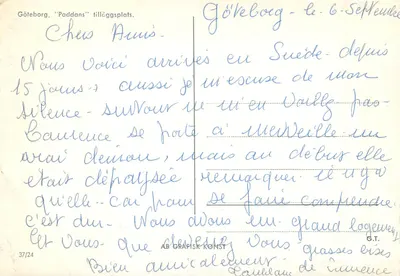 Göteborg, "Paddans" tilläggsplats.
Göteborg - le 6 Septembre
Chers Amis.
Nous voici arrivés en Suède depuis
15 jours, aussi je m'excuse de mon
silence - surtout ne m'en voulez pas -
Laurence se porte à merveille un
vrai démon, mais au début elle
était dépaysée remarquez il n'y a
qu'elle - car pour se faire comprendre
c'est dur - Nous avons un grand logement
Et Vous que devenez Vous grosses bises
AB GRAFISK KONST
G.T.
37/24
Bien amicalement.